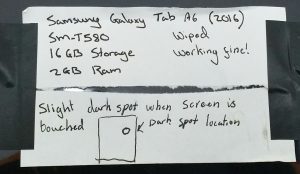 Samsung Galaxy Tab A6 (2016)
SM-T580 Wiped
16GB Storage Working fine!
2GB Ram
Slight dark spot when screen is
touched Dark spot location